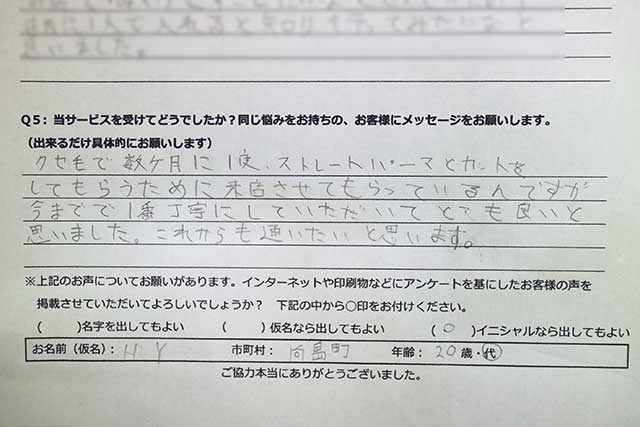 Q5：当サービスを受けてどうでしたか？同じ悩みをお持ちの、お客様にメッセージをお願いします。
（出来るだけ具体的にお願いします）
クセ毛で数ケ月に1度、ストレートパーマとカットを
してもらうために来店させてもらっているんですが
今までで1番丁寧にしていただいてとても良いと
思いました。これからも通いたいと思います。
※上記のお声についてお願いがあります。インターネットや印刷物などにアンケートを基にしたお客様の声を
掲載させていただいてよろしいでしょうか？ 下記の中から○印をお付けください。
(　　)名字を出してもよい　(　　)仮名なら出してもよい　(○)イニシャルなら出してもよい
お名前（仮名）：H Y　市町村：向島町　年齢：20歳・代
ご協力本当にありがとうございました。